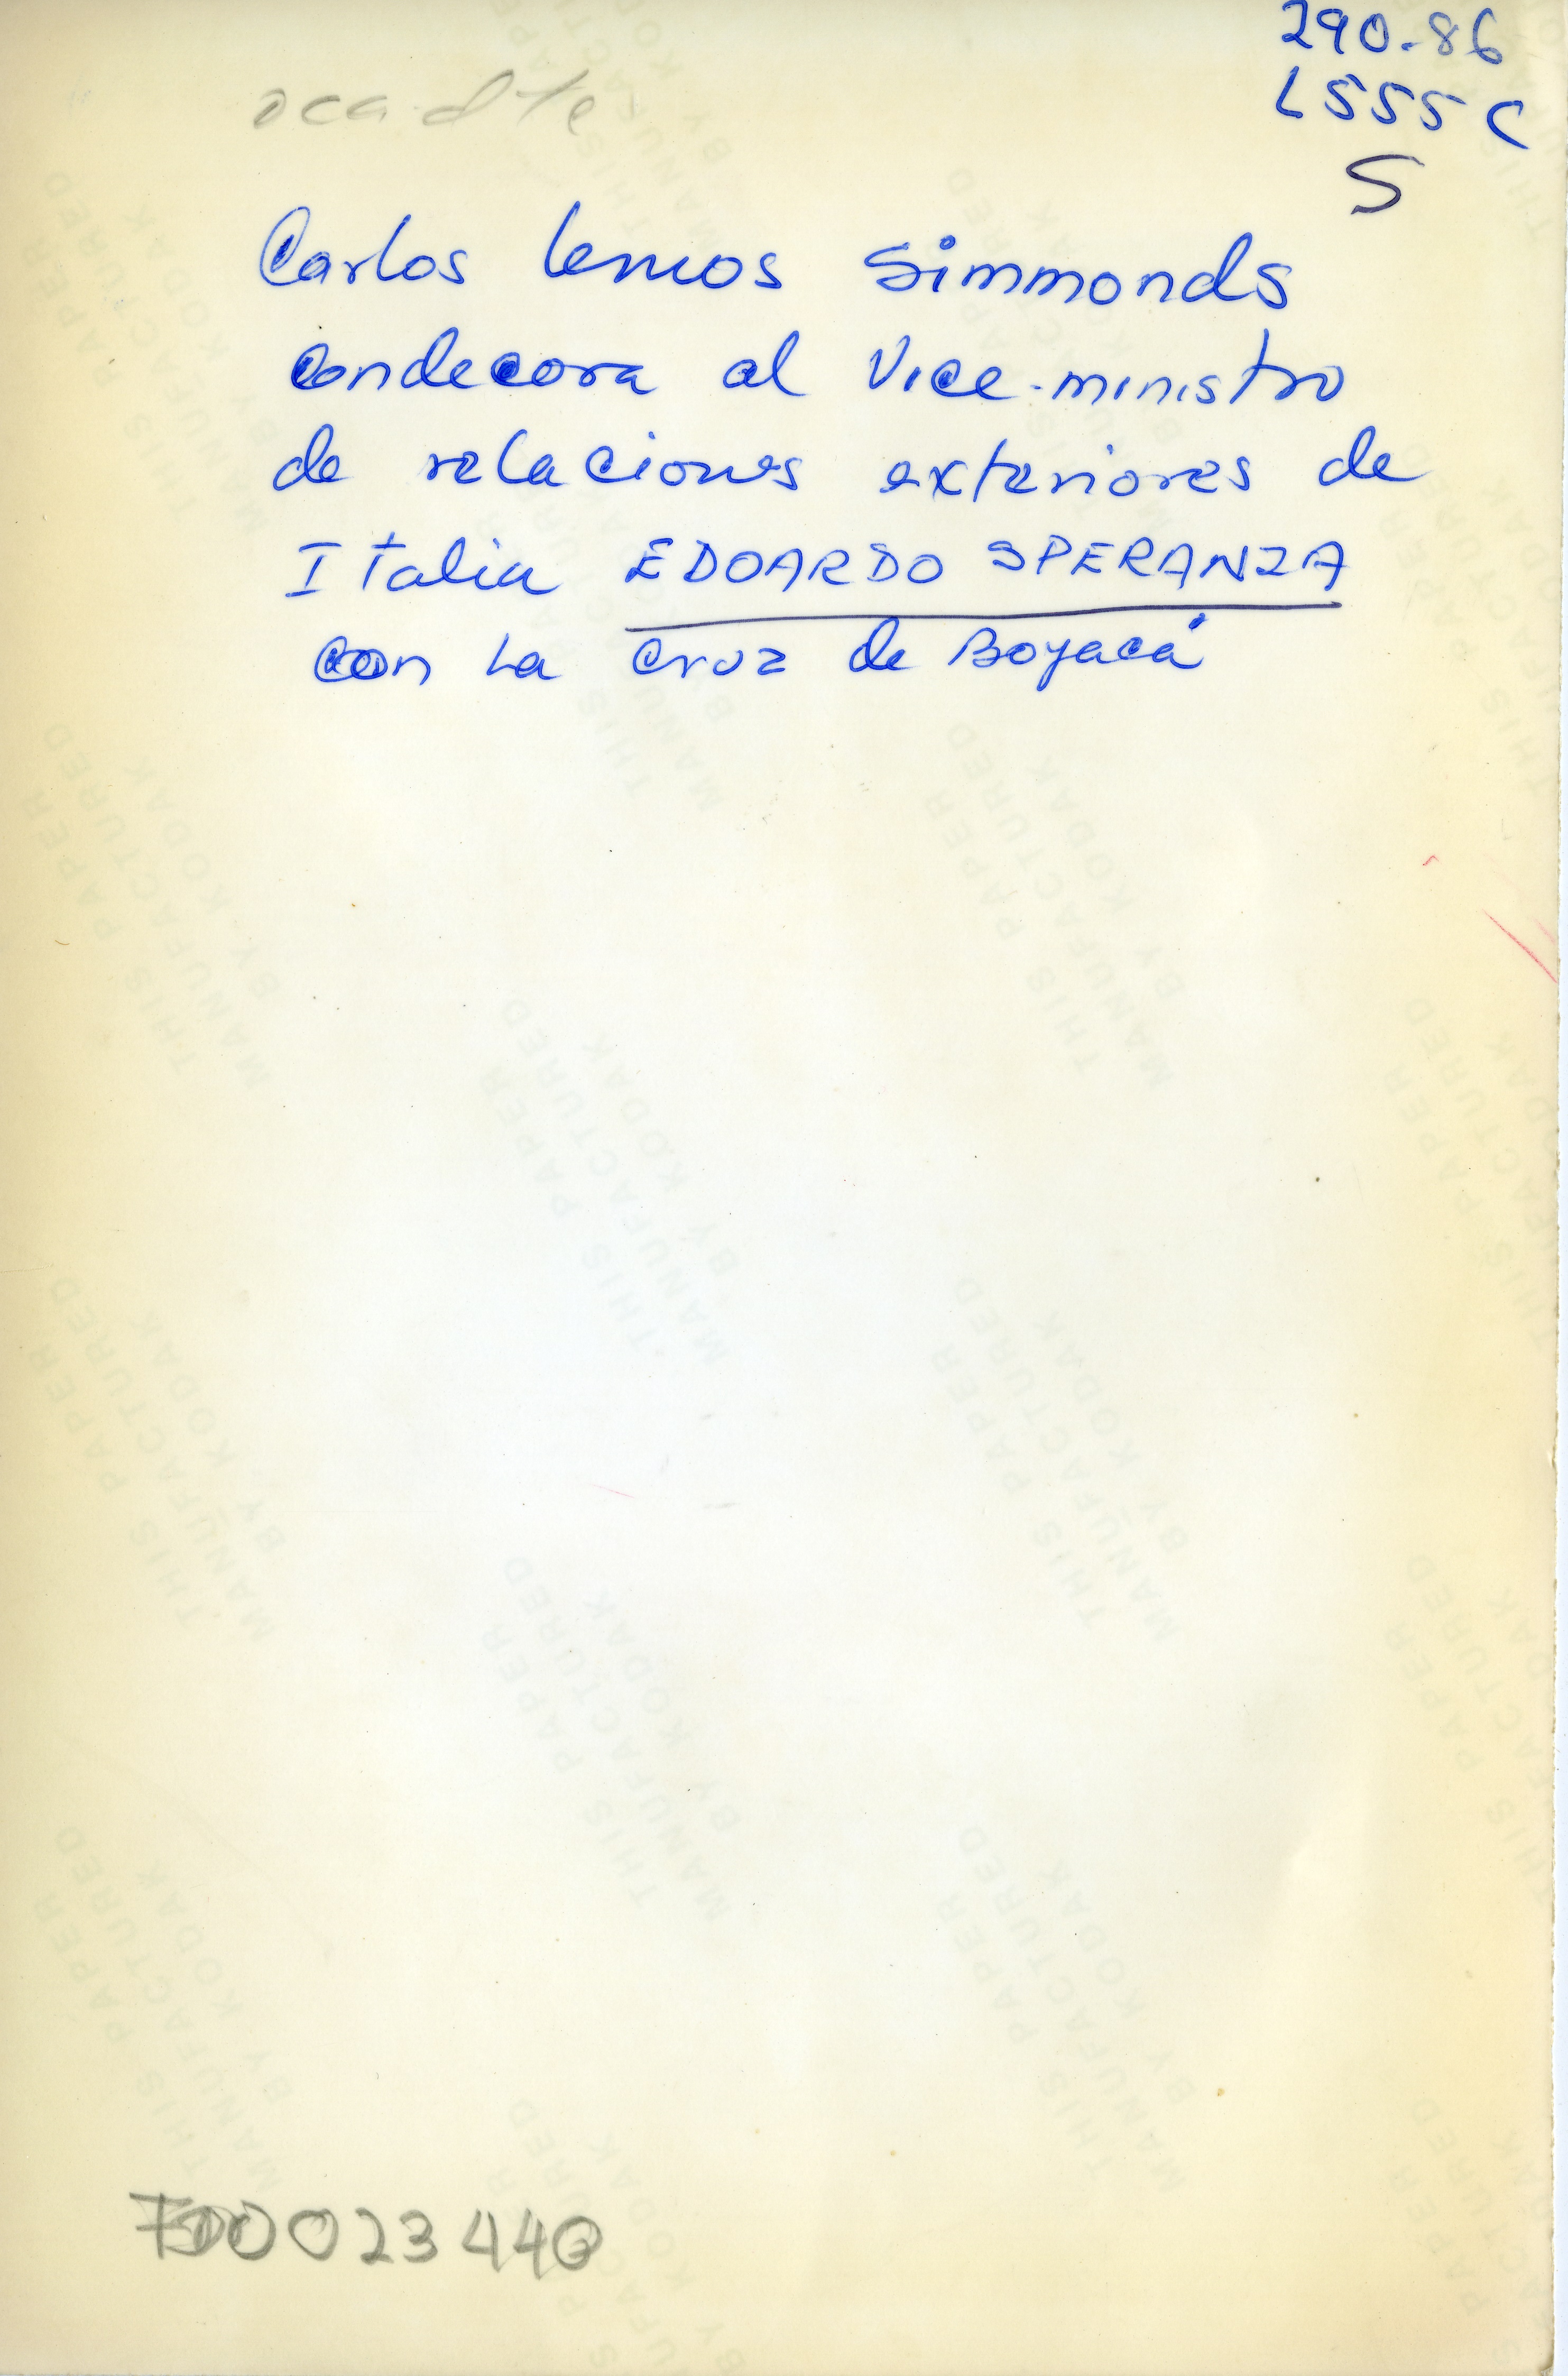 290.86
L555C
S
Carlos Lemos Simmonds
condecora al Vice-ministro
de relaciones exteriores de
Italia EDOARDO SPERANZA
con La cruz de Boyacá
THIS PAPER
MANUFACTURED
BY KODAK